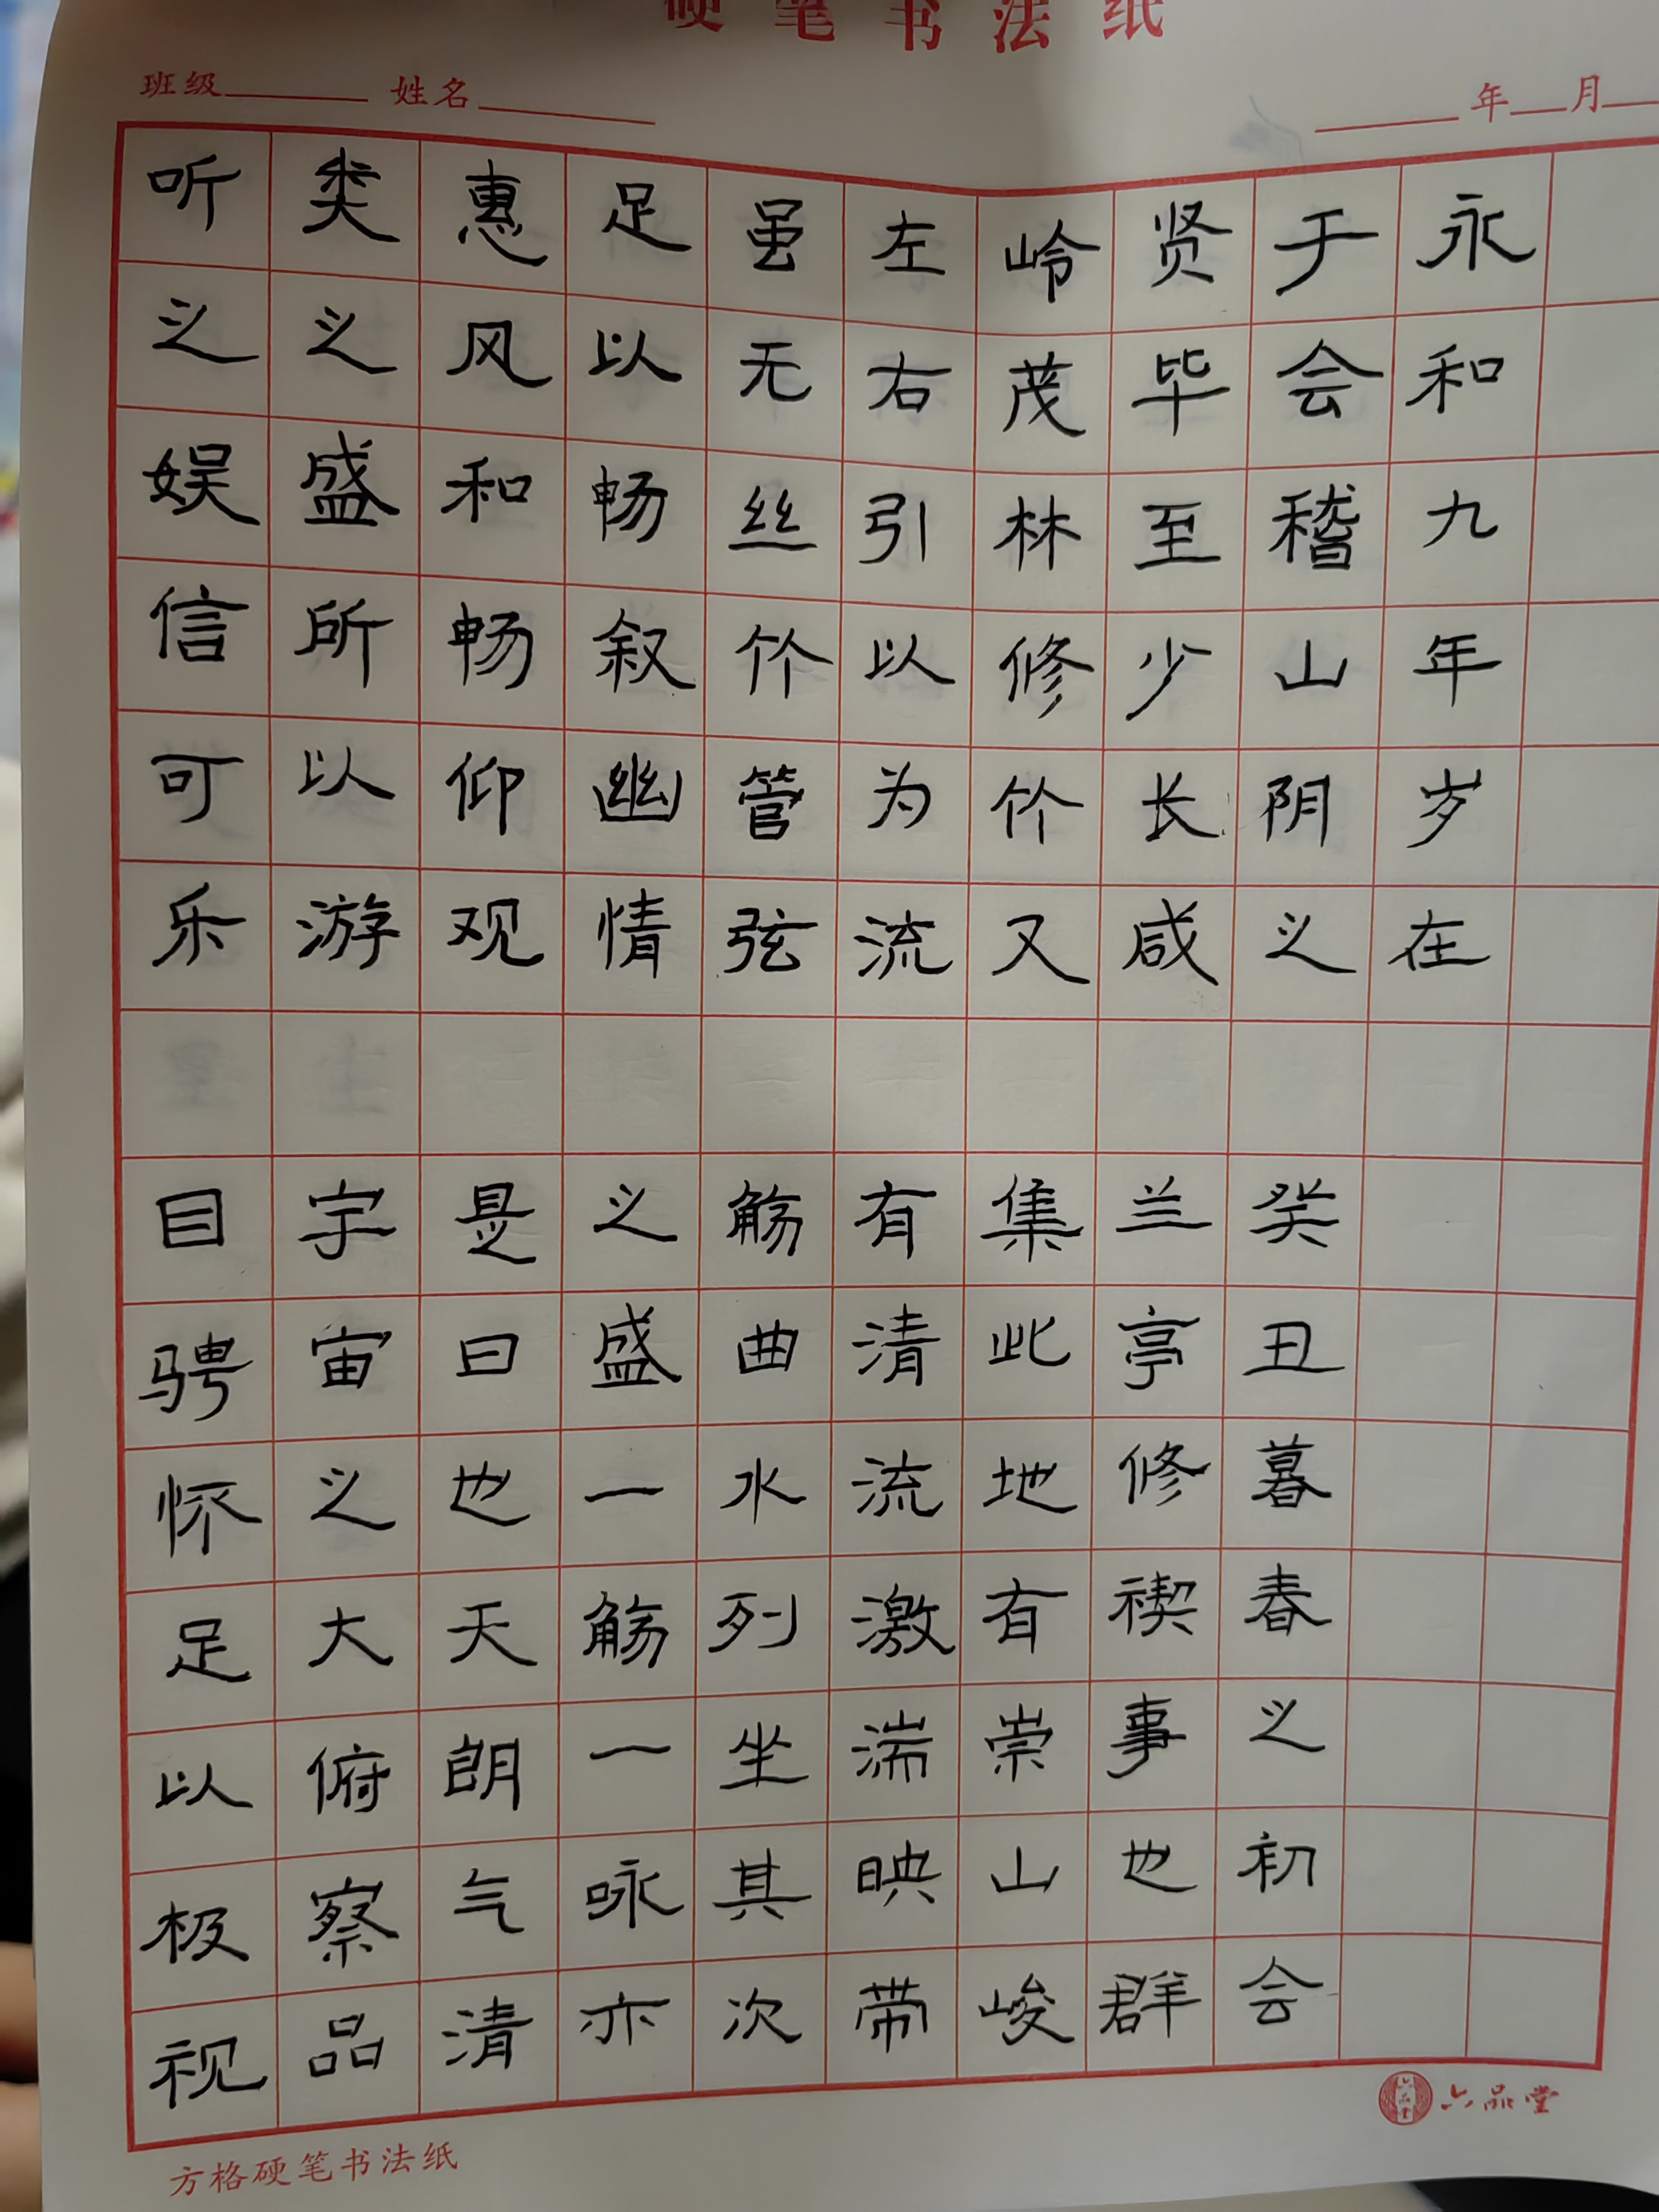 硬笔书法纸
班级 姓名 年 月
永和九年岁在
癸丑暮春之初会
于会稽山阴之
兰亭修禊事也群
贤毕至少长咸
集此地有崇山峻
岭茂林修竹又
有清流激湍映带
左右引以为流
觞曲水列坐其次
虽无丝竹管弦
之盛一觞一咏亦
足以畅叙幽情
是日也天朗气清
惠风和畅仰观
宇宙之大俯察品
类之盛所以游
目骋怀足以极视
听之娱信可乐
六品堂
方格硬笔书法纸